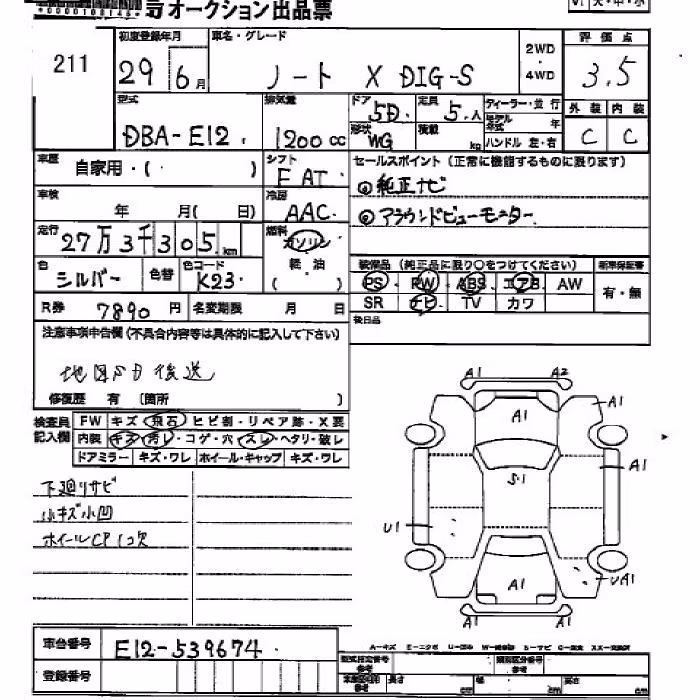 オークション出品票
211
初度登録年月 車名・グレード
29 6月 ノート X DIG-S
2WD
・
4WD
評価点
3.5
外装 内装
C C
型式 排気量
DBA-E12 1200cc
ドア 5D 定員 5人
形状 WG 積載 kg
ディーラー・並行
モデル年式 年
ハンドル 左・右
車歴 自家用・( )
シフト
F AT
車検 年 月( 日)
冷房
AAC
セールスポイント (正常に機能するものに限ります)
純正ナビ
アラウンドビューモニター
走行
27万3千305km
燃料
ガソリン
軽・油
( )
色 シルバー 色替 色コード K23
装備品 (純正品に限り○をつけてください) 新車保証書
PS PW ABS エアB AW
SR ナビ TV カワ
有・無
R券 7890円 名変期限 月 日
後日品
注意事項申告欄 (不具合内容等は具体的に記入して下さい)
後送
修復歴 有 (箇所 )
検査員記入欄
FW キズ・飛石・ヒビ割・リペア跡・X要
内装 キズ・汚レ・コゲ・穴・スレ・ヘタリ・破レ
ドアミラー キズ・ワレ ホイール・キャップ キズ・ワレ
下廻リサビ
小キズ小凹
ホイールCP1コ欠
A1 A2
A1 A1
S1 A1
U1
A1 UA1
A1 A1
車台番号 E12-539674
登録番号
A-キズ
型式指定番号 参考
類別区分番号 参考
長さ cm 幅 cm 高さ cm